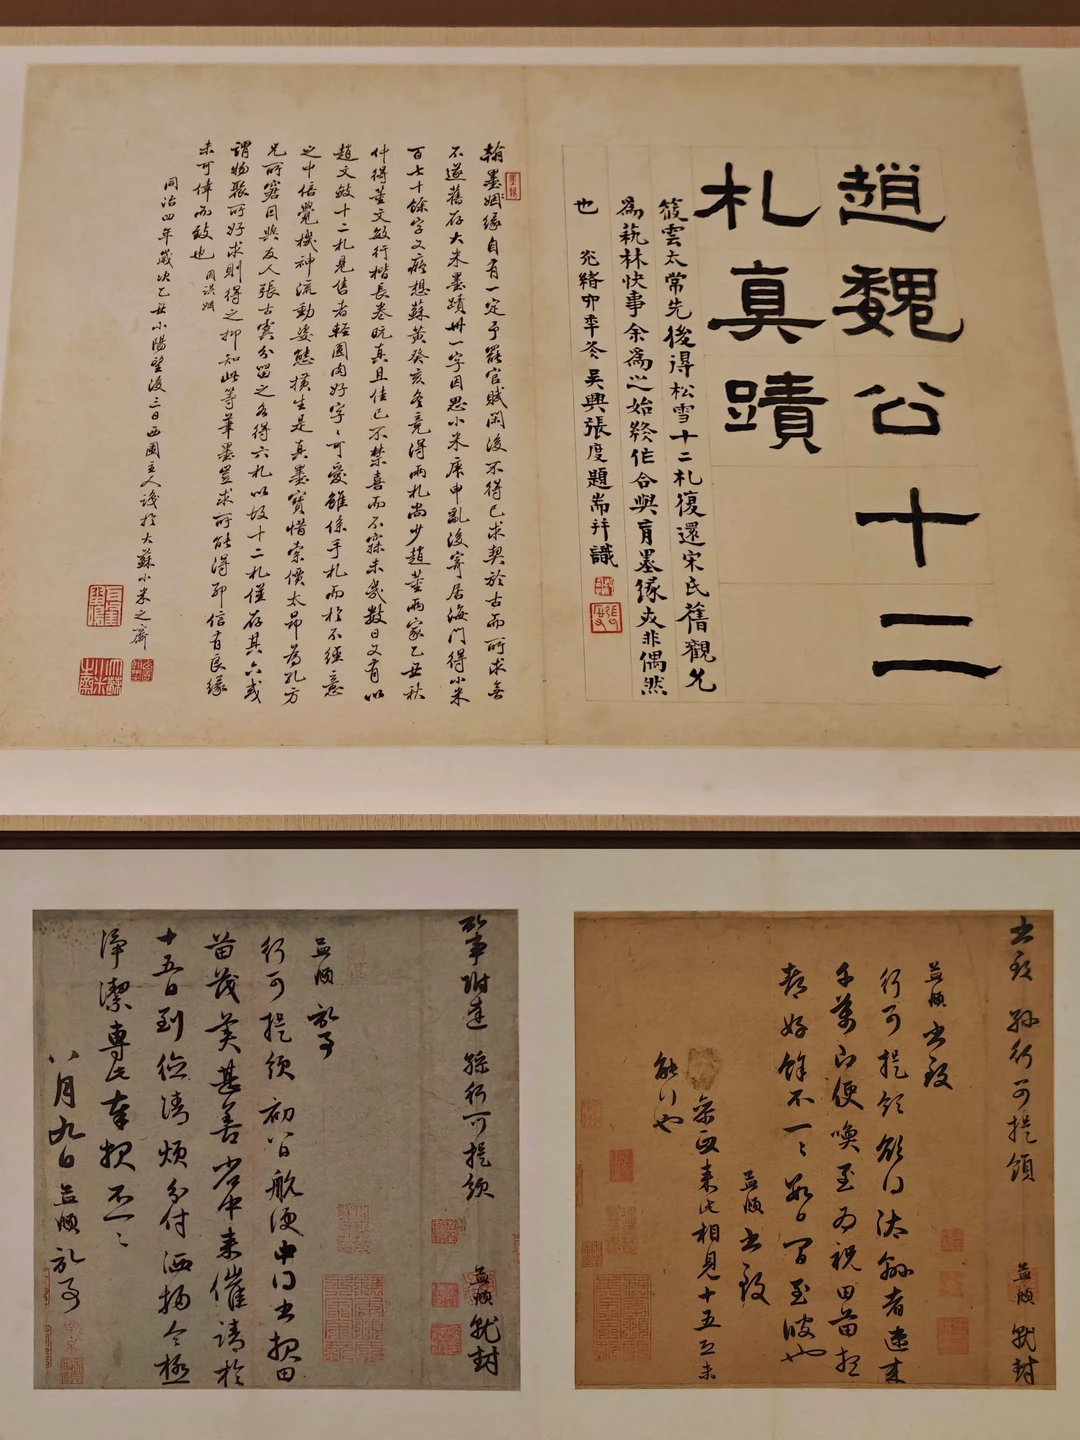 趙魏公十二
札真蹟
筱雲太常先後得松雪十二札復還宋氏舊觀允
為藝林快事余為之始終作合與有墨緣夫非偶然
也
光緒卯年冬吳興張度題耑并識
翰墨姻緣自有一定予罷官賦閑後不得已求契於古而所求每
不遂舊存大米墨蹟卅一字因思小米庚申亂後寄居海門得小米
百七十餘字又癡想蘇黃癸亥冬竟得兩札尚少趙董兩家乙丑秋
仲得董文敏行楷長卷既真且佳已不禁喜而不寐未幾數日又有以
趙文敏十二札見售者輕圓肉好字字可愛雖係手札而於不經意
之中倍覺機神流動姿態橫生是真墨寶惜索價太昂為孔方
兄所窘因與友人張古虞分留之各得六札以故十二札僅存其六或
謂物聚所好求則得之抑知此等筆墨豈求所能得耶信有良緣
未可倖而致也
同治四年歲次乙丑小陽望後三日西圃主人識於大蘇小米之齋
書致 孫行可提領 益順就封
益順書致
行可提領
千萬即便喚至為祝田苗想
都好餘不一一
益順書致
來此相見十五
孫行可提領 益順就封
益順
行可提領初八日航便中曾書報田
苗茂美甚善省中來催請於
十五日到位請煩分付洒掃令極
淨潔專此奉報不一一
八月九日益順